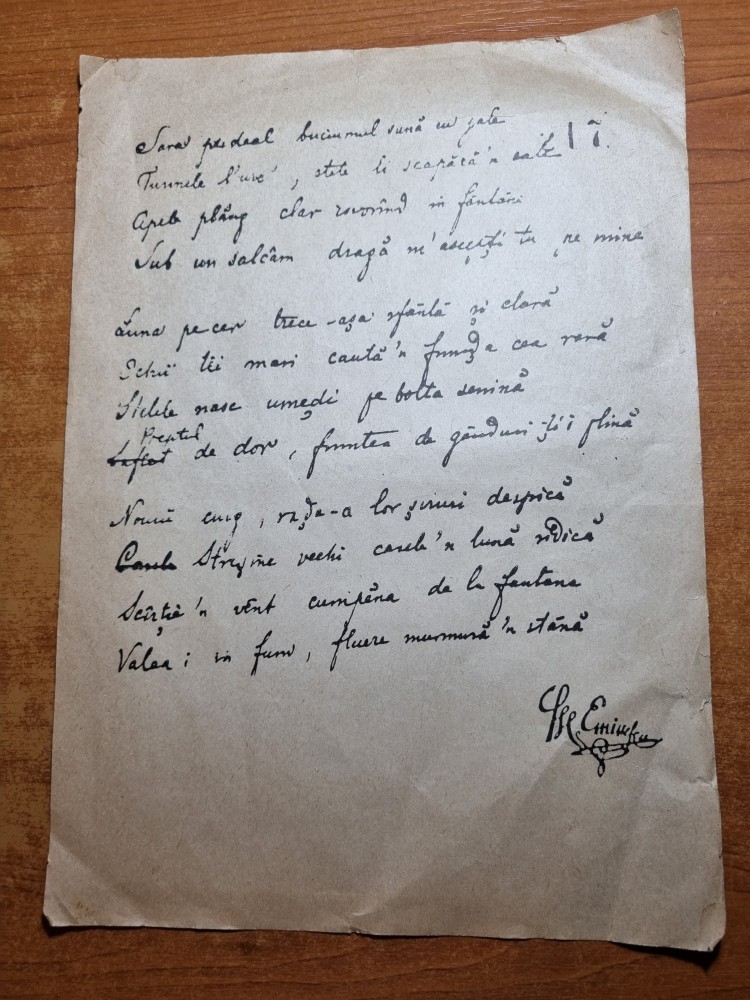 Sara pe deal buciumul sună cu jale
Turmele 'l urc', stele li scapără 'n cale
Apele plâng clar isvorind în fântâni
Sub un salcâm dragă m'aștepți tu pe mine
Luna pe cer trece-așa sfântă și clară
Ochii tĕi mari caută 'n frunḑa cea rară
Stelele nasc umeḑi pe bolta senină
Peptul
de dor, fruntea de gânduri ți-i plină
Nourii curg, raḑa-a lor șiruri despică
Streșine vechi casele 'n lună ridică
Scîrție 'n vênt cumpĕna de la fantana
Valea-i în fum, fluere murmură 'n stână
Eminescu